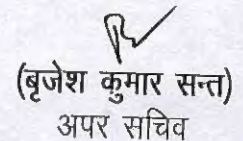 (बृजेश कुमार सन्त)
अपर सचिव